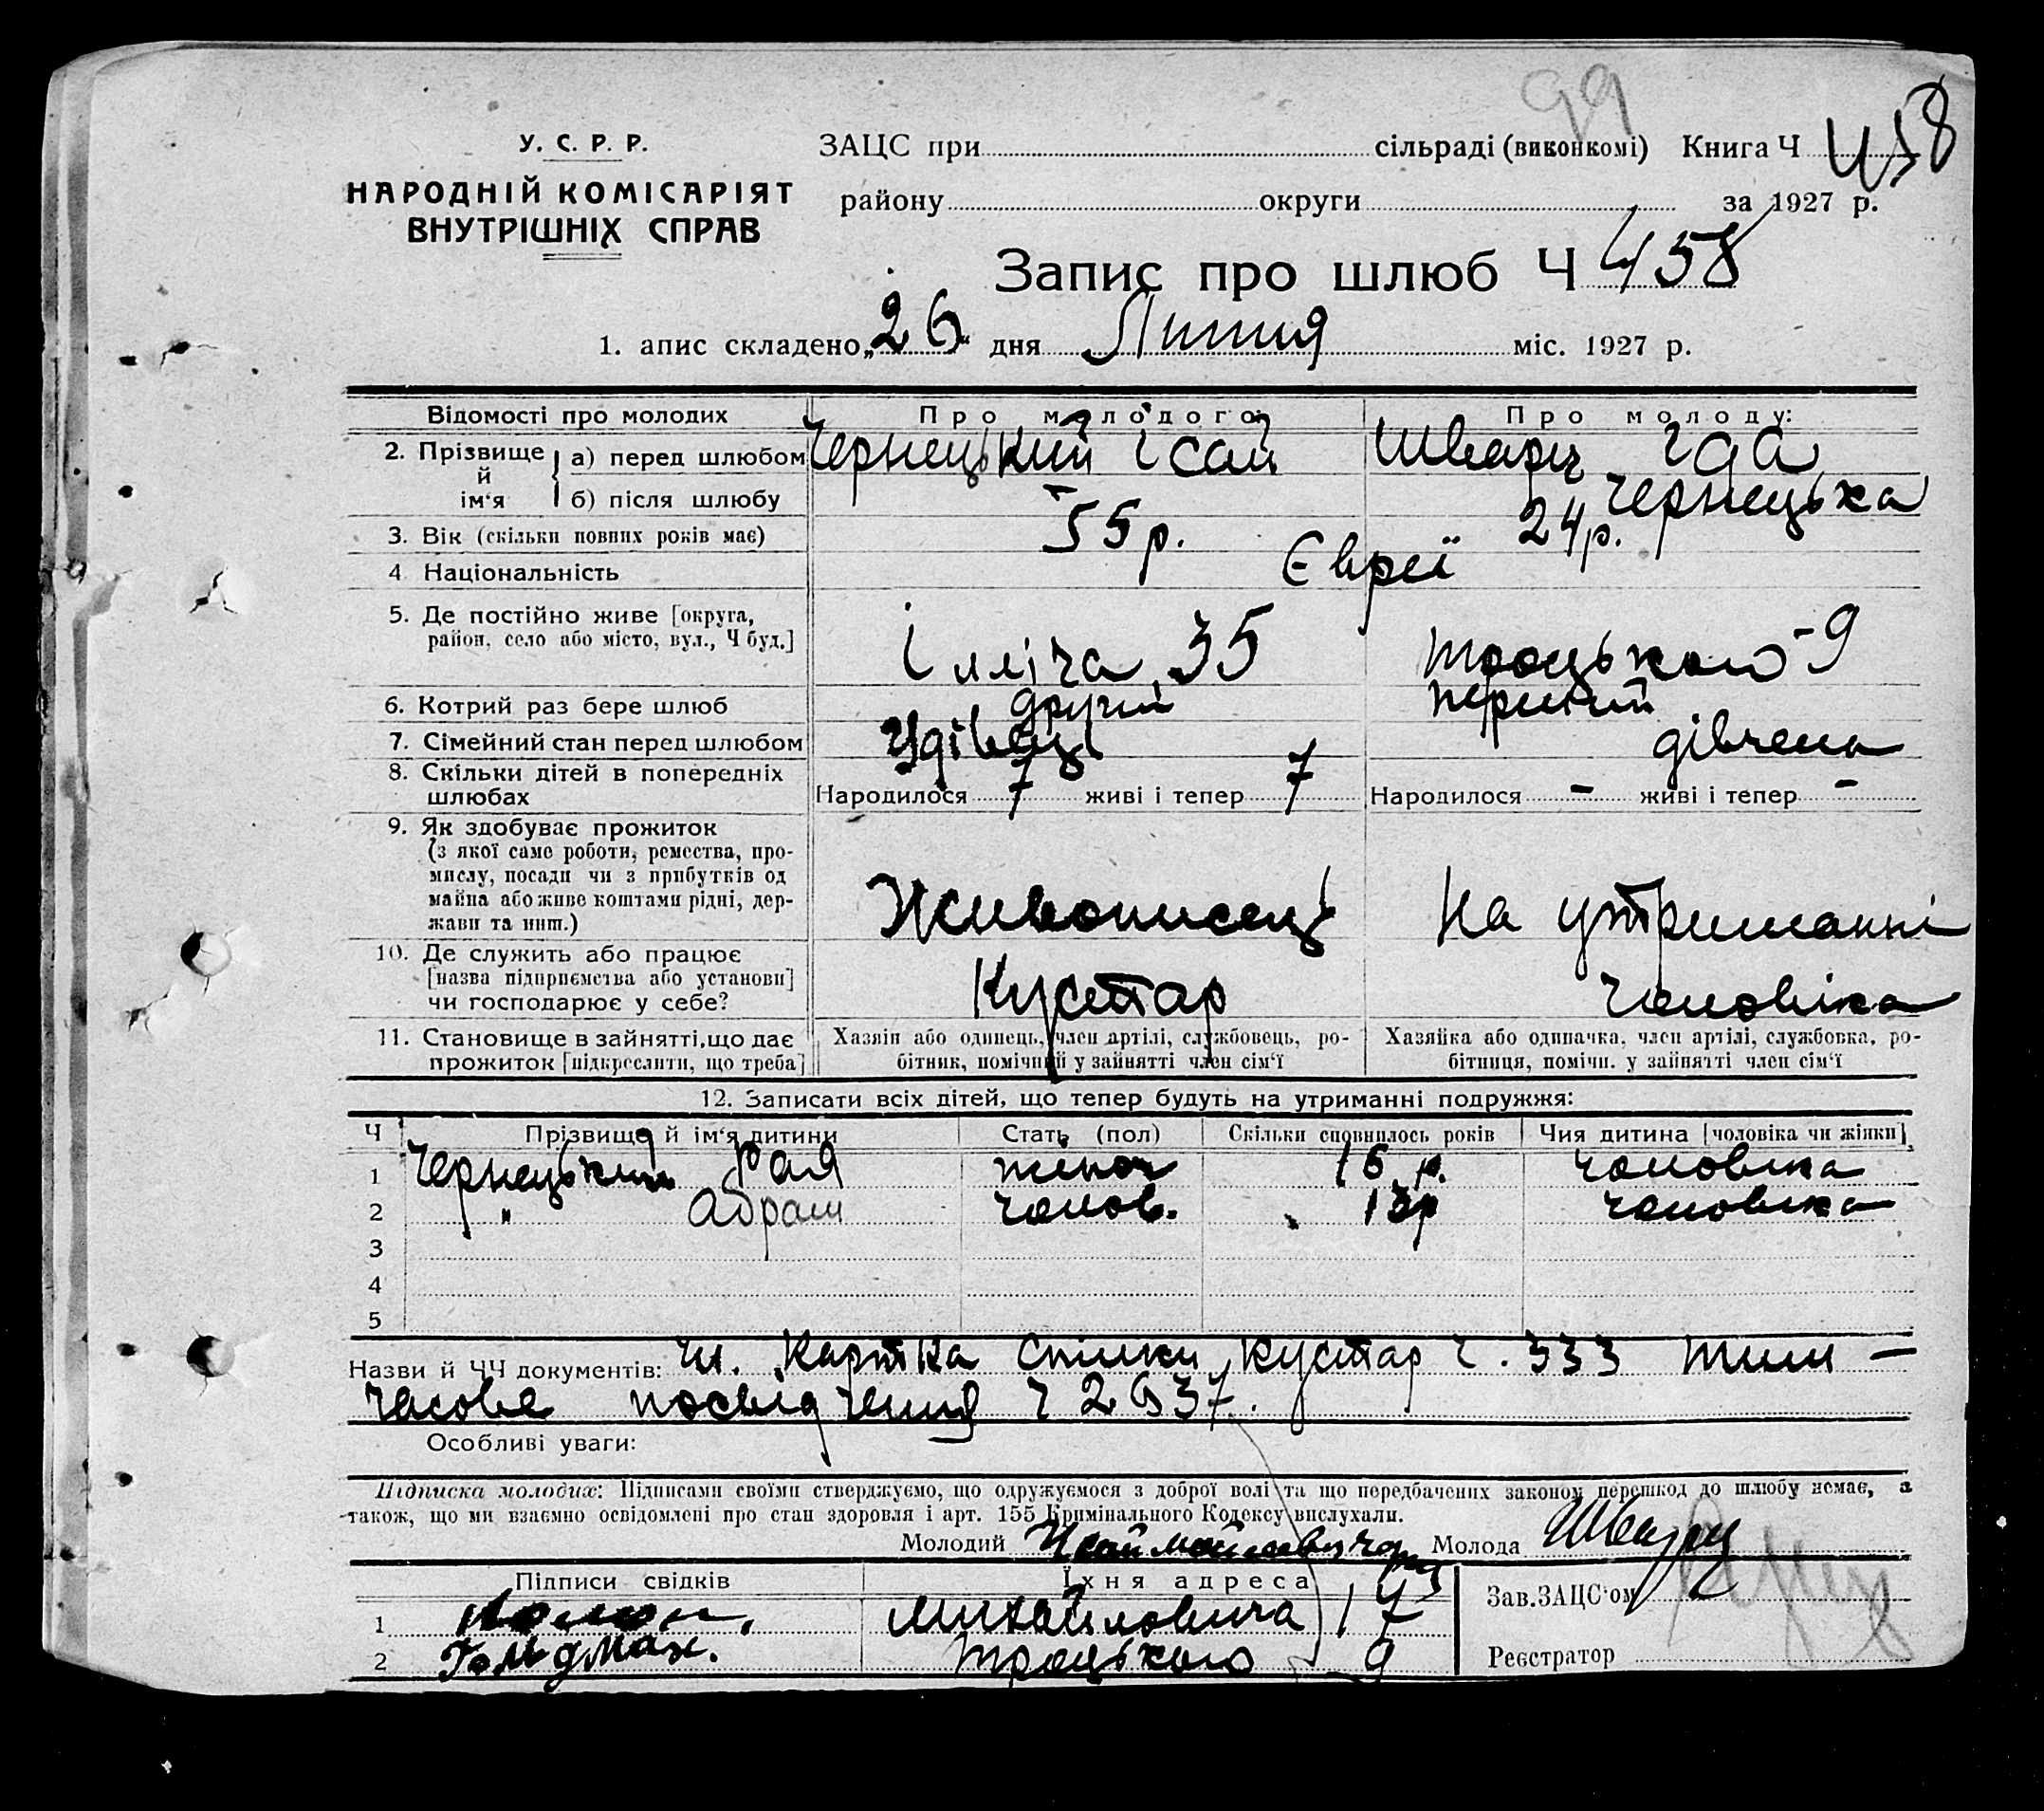 99
У. С. Р. Р. ЗАЦС при сільраді (виконкомі) Книга Ч 458
НАРОДНІЙ КОМІСАРІЯТ
ВНУТРІШНІХ СПРАВ
району округи за 1927 р.
Запис про шлюб Ч 458
1. апис складено „26“ дня Липня міс. 1927 р.
Відомості про молодих Про молодого: Про молоду:
2. Прізвище й ім‘я а) перед шлюбом Чернецький Ісай Шварц Іда
б) після шлюбу Чернецька
3. Вік (скільки повних років має) 55 р. 24 р.
4 Національність Євреї
5. Де постійно живе [округа,
район, село або місто, вул., Ч буд.] Ілліча 35 Троцького - 9
6. Котрий раз бере шлюб другий перший
7. Сімейний стан перед шлюбом Удівець дівчена
8. Скільки дітей в попередніх
шлюбах Народилося 7 живі і тепер 7 Народилося - живі і тепер -
9. Як здобуває прожиток
(з якої саме роботи, ремества, про-
мислу, посади чи з прибутків од
майна або живе коштами рідні, дер-
жави та инш.) Живописець На утриманні
10. Де служить або працює
[назва підприємства або установи]
чи господарює у себе? Кустар чоловіка
11. Становище в зайнятті, що дає
прожиток [підкреслити, що треба]
Хазяїн або одинець, член артілі, службовець, ро-
бітник, помічний у зайнятті член сім‘ї
Хазяйка або одиначка, член артілі, службовка, ро-
бітниця, помічн. у зайнятті член сім‘ї
12. Записати всіх дітей, що тепер будуть на утриманні подружжя:
Ч Прізвище й ім‘я дитини Стать (пол) Скільки сповнилось років Чия дитина [чоловіка чи жінки]
1 Чернецький Рая жіноч 16 р. чоловіка
2 " Абрам чолов. 13 р чоловіка
3
4
5
Назви й ЧЧ документів: Чл. картка спілки кустар ч. 333 тим-
часове посвідчення ч 2937.
Особливі уваги:
Підписка молодих: Підписами своїми стверджуємо, що одружуємося з доброї волі та що передбачених законом перешкод до шлюбу немає, а
також, що ми взаємно освідомлені про стан здоровля і арт. 155 Кримінального Кодексу вислухали.
Молодий Молода Шварц
Підписи свідків Їхня адреса Зав. ЗАЦС‘ом
1 Михайловича 17
2 Гольдман. Троцького 9 Реєстратор